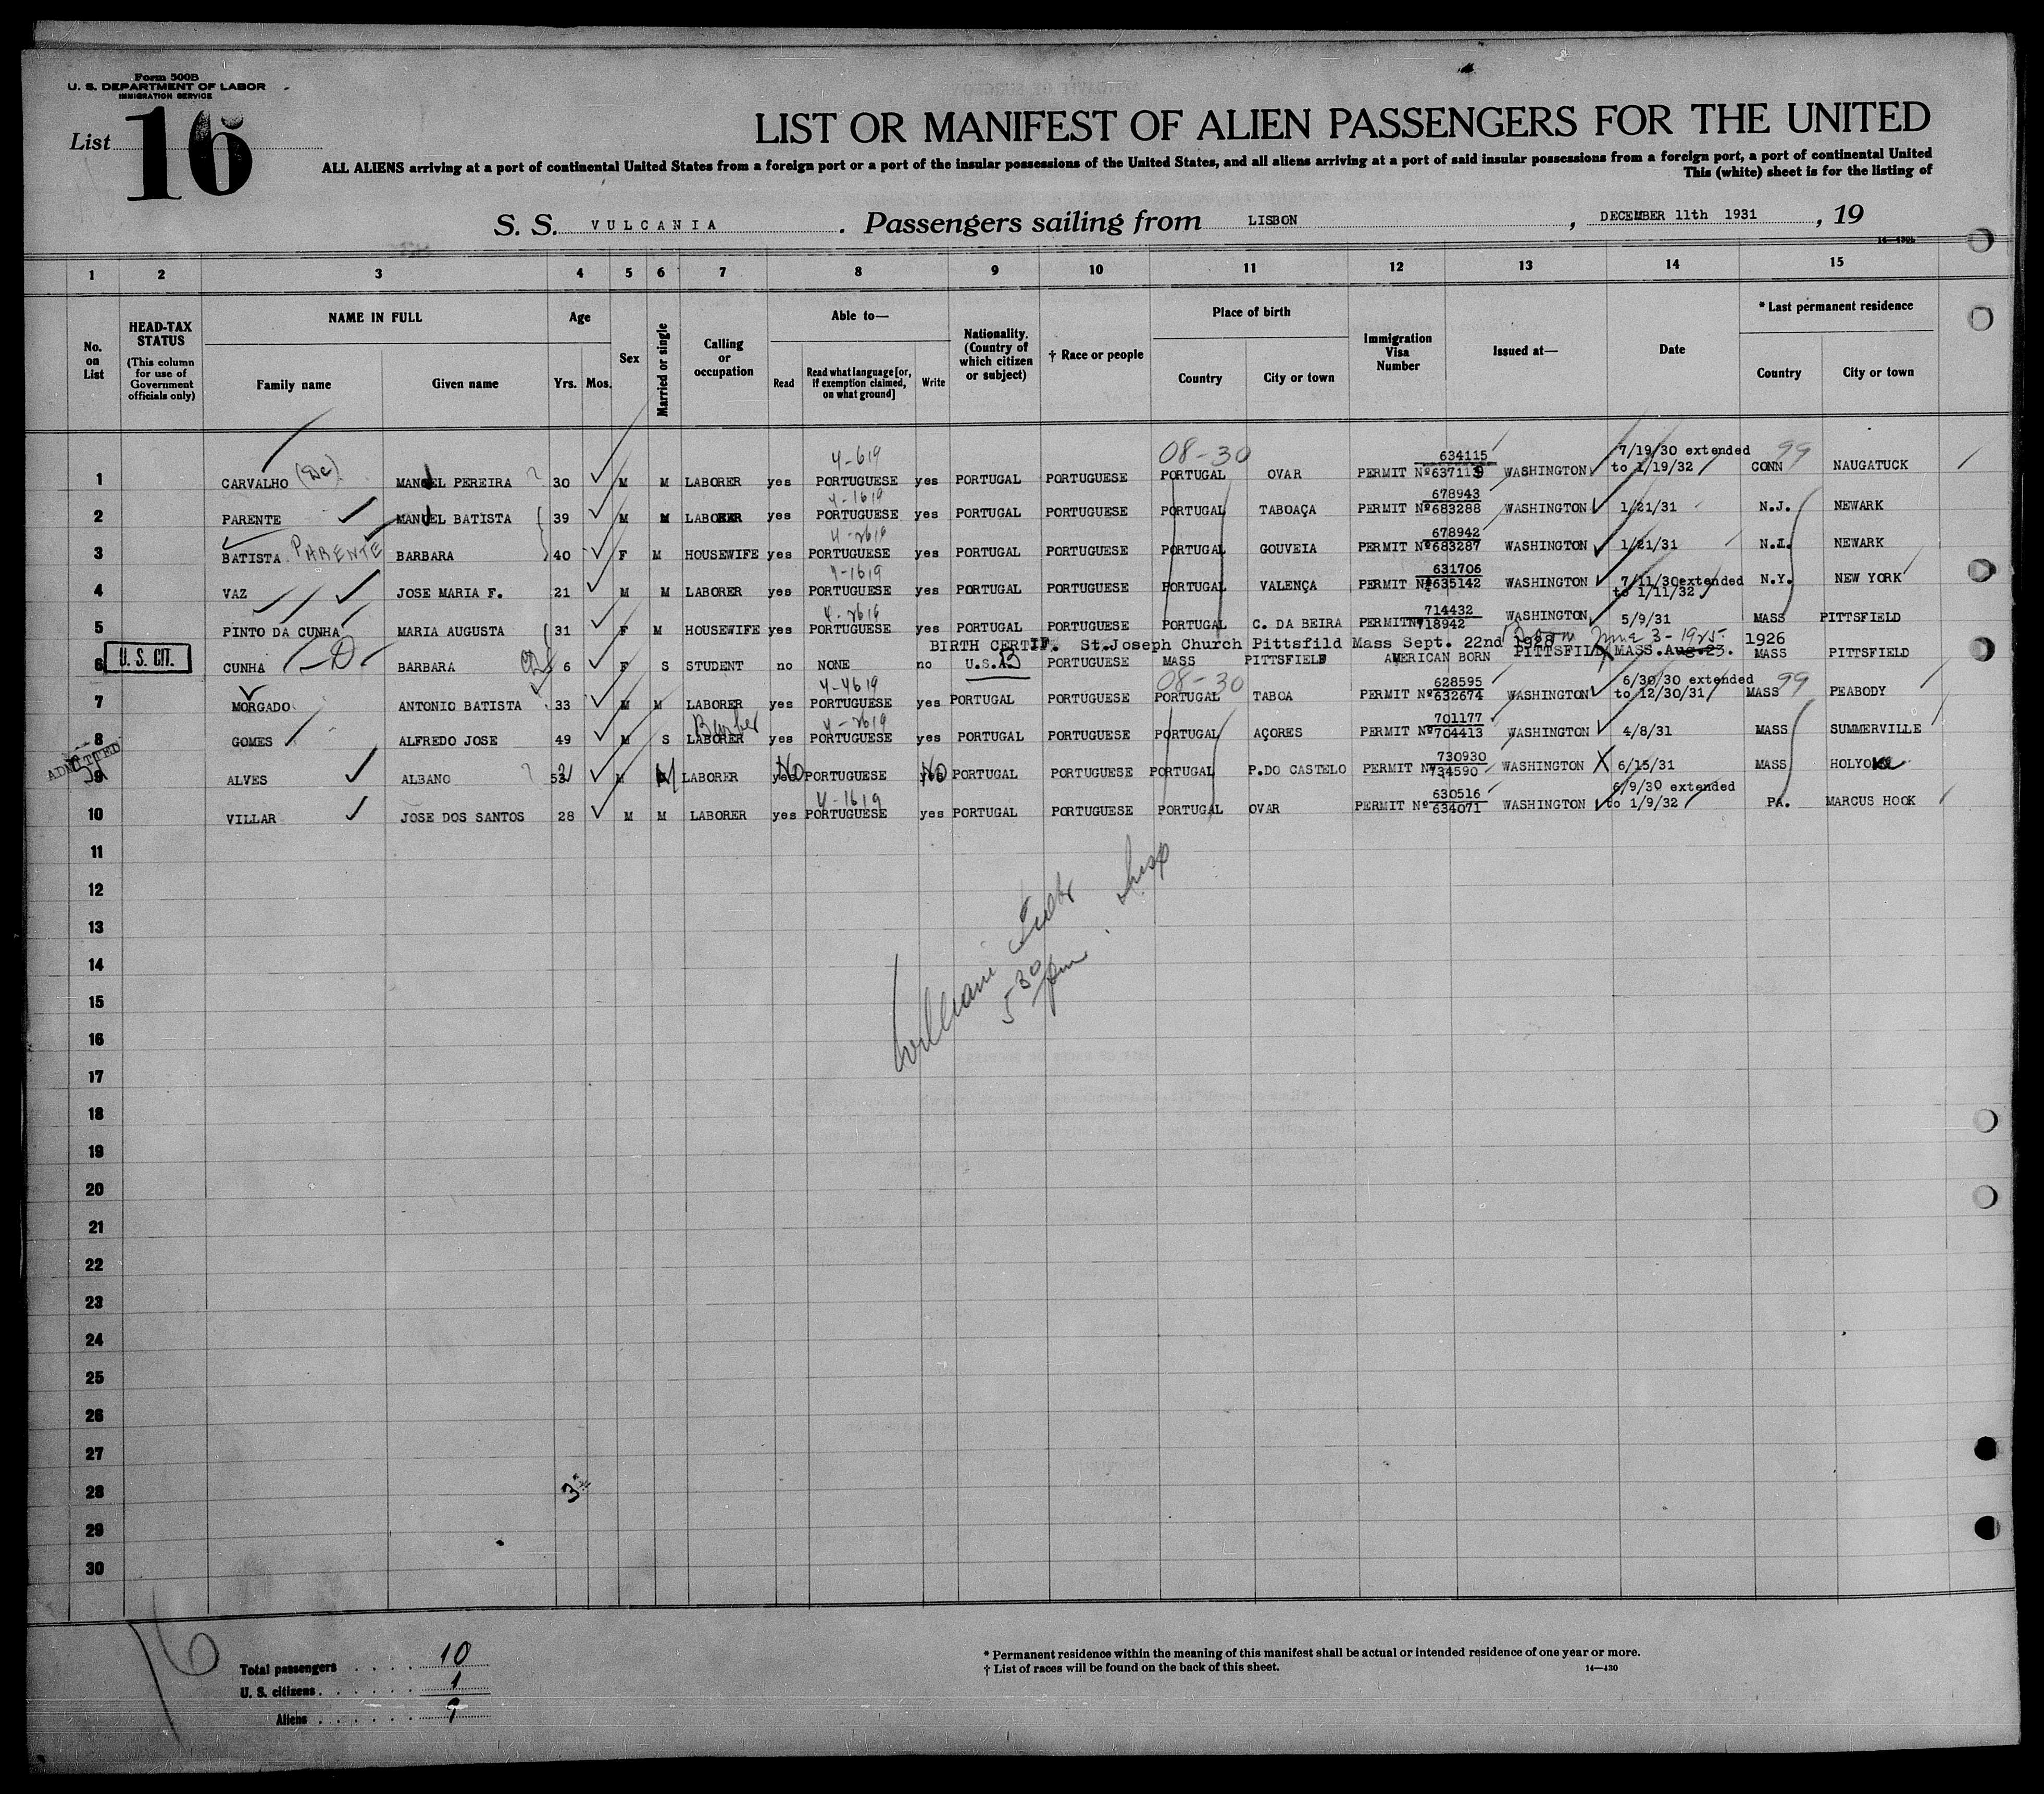 Form 500B
U. S. DEPARTMENT OF LABOR
IMMIGRATION SERVICE
List 16
LIST OR MANIFEST OF ALIEN PASSENGERS FOR THE UNITED
ALL ALIENS arriving at a port of continental United States from a foreign port or a port of the insular possessions of the United States, and all aliens arriving at a port of said insular possessions from a foreign port, a port of continental United
This (white) sheet is for the listing of
S. S. VULCANIA . Passengers sailing from LISBON , DECEMBER 11th 1931 , 19
14—430b
1 2 3 4 5 6 7 8 9 10 11 12 13 14 15
No. on List
HEAD-TAX STATUS (This column for use of Government officials only)
NAME IN FULL
Family name Given name
Age
Yrs. Mos.
Sex
Married or single
Calling or occupation
Able to—
Read Read what language [or, if exemption claimed, on what ground] Write
Nationality. (Country of which citizen or subject)
† Race or people
Place of birth
Country City or town
Immigration Visa Number
Issued at—
Date
* Last permanent residence
Country City or town
4-619 08-30 634115 7/19/30 extended 99
1 CARVALHO (De) MANUEL PEREIRA ? 30 M M LABORER yes PORTUGUESE yes PORTUGAL PORTUGUESE PORTUGAL OVAR PERMIT Nº637119 WASHINGTON to 1/19/32 CONN NAUGATUCK
4-1619 678943
2 PARENTE MANUEL BATISTA 39 M M LABORER yes PORTUGUESE yes PORTUGAL PORTUGUESE PORTUGAL TABOAÇA PERMIT Nº683288 WASHINGTON 1/21/31 N.J. NEWARK
4-2619 678942
3 BATISTA PARENTE BARBARA 40 F M HOUSEWIFE yes PORTUGUESE yes PORTUGAL PORTUGUESE PORTUGAL GOUVEIA PERMIT Nº683287 WASHINGTON 1/21/31 N.J. NEWARK
4-1619 631706
4 VAZ JOSE MARIA F. 21 M M LABORER yes PORTUGUESE yes PORTUGAL PORTUGUESE PORTUGAL VALENÇA PERMIT Nº635142 WASHINGTON 7/11/30 extended to 1/11/32 N.Y. NEW YORK
4-2619 714432
5 PINTO DA CUNHA MARIA AUGUSTA 31 F M HOUSEWIFE yes PORTUGUESE yes PORTUGAL PORTUGUESE PORTUGAL C. DA BEIRA PERMIT Nº718942 WASHINGTON 5/9/31 MASS PITTSFIELD
BIRTH CERTIF. St.Joseph Church Pittsfild Mass Sept. 22nd 1928 Born June 3-1925. 1926
6 U. S. CIT. CUNHA BARBARA 6 F S STUDENT no NONE no U.S.A PORTUGUESE MASS PITTSFIELD AMERICAN BORN PITTSFILD MASS. Aug.23. MASS PITTSFIELD
4-4619 08-30 628595 6/30/30 extended 99
7 MORGADO ANTONIO BATISTA 33 M M LABORER yes PORTUGUESE yes PORTUGAL PORTUGUESE PORTUGAL TABOA PERMIT Nº632674 WASHINGTON to 12/30/31 MASS PEABODY
Barber 4-2619 701177
8 GOMES ALFREDO JOSE 49 M S LABORER yes PORTUGUESE yes PORTUGAL PORTUGUESE PORTUGAL AÇORES PERMIT Nº704413 WASHINGTON 4/8/31 MASS SUMMERVILLE
ADMITTED No No 730930
9 ALVES ALBANO ? 53 M M LABORER yes PORTUGUESE yes PORTUGAL PORTUGUESE PORTUGAL P.DO CASTELO PERMIT Nº734590 WASHINGTON 6/15/31 MASS HOLYOKE
4-1619 630516 6/9/30 extended
10 VILLAR JOSE DOS SANTOS 28 M M LABORER yes PORTUGUESE yes PORTUGAL PORTUGUESE PORTUGAL OVAR PERMIT Nº634071 WASHINGTON to 1/9/32 PA. MARCUS HOOK
11
12
13
14
15
16
17
18
19
20
21
22
23
24
25
26
27
28
29
30
William
Insp
5 30 pm
16
Total passengers 10
U. S. citizens 1
Aliens 9
* Permanent residence within the meaning of this manifest shall be actual or intended residence of one year or more.
† List of races will be found on the back of this sheet.
14—430